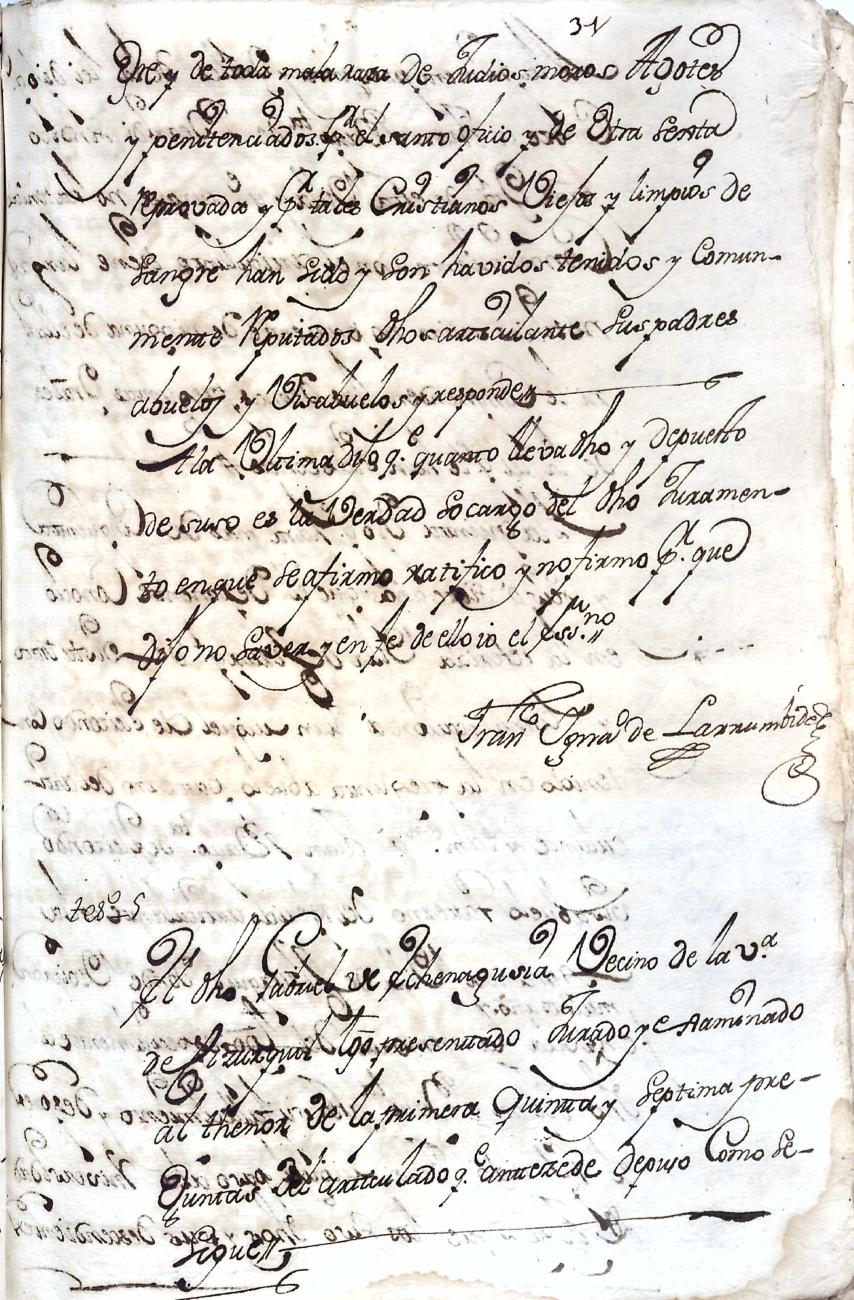 gre y de toda mala raza de Judios moros Agotes
y penitenciados pr el santo oficio y de otra Secta
reprovada y pr tales Cristianos Viejos y limpios de
Sangre han sido y son havidos tenidos y Comun-
mente Reputados dho articulante sus padres
abuelos y Visabuelos y responde
A la Ultima dijo qe quanto lleva dho y depuesto
de suso es la Verdad so cargo del dho Juramen-
to en que se afirmo ratifico y no firmo pr que
dijo no saver y en fe de ello io el essno
Franco Igno de Larrumbide
tesgo 5
El dho Gabriel de Echenagusia Vecino de la va
de tgo presentado Jurado y examinado
al thenor de la primera quinta y septima pre-
guntas del articulado qe antezede depuso Como se-
sigue